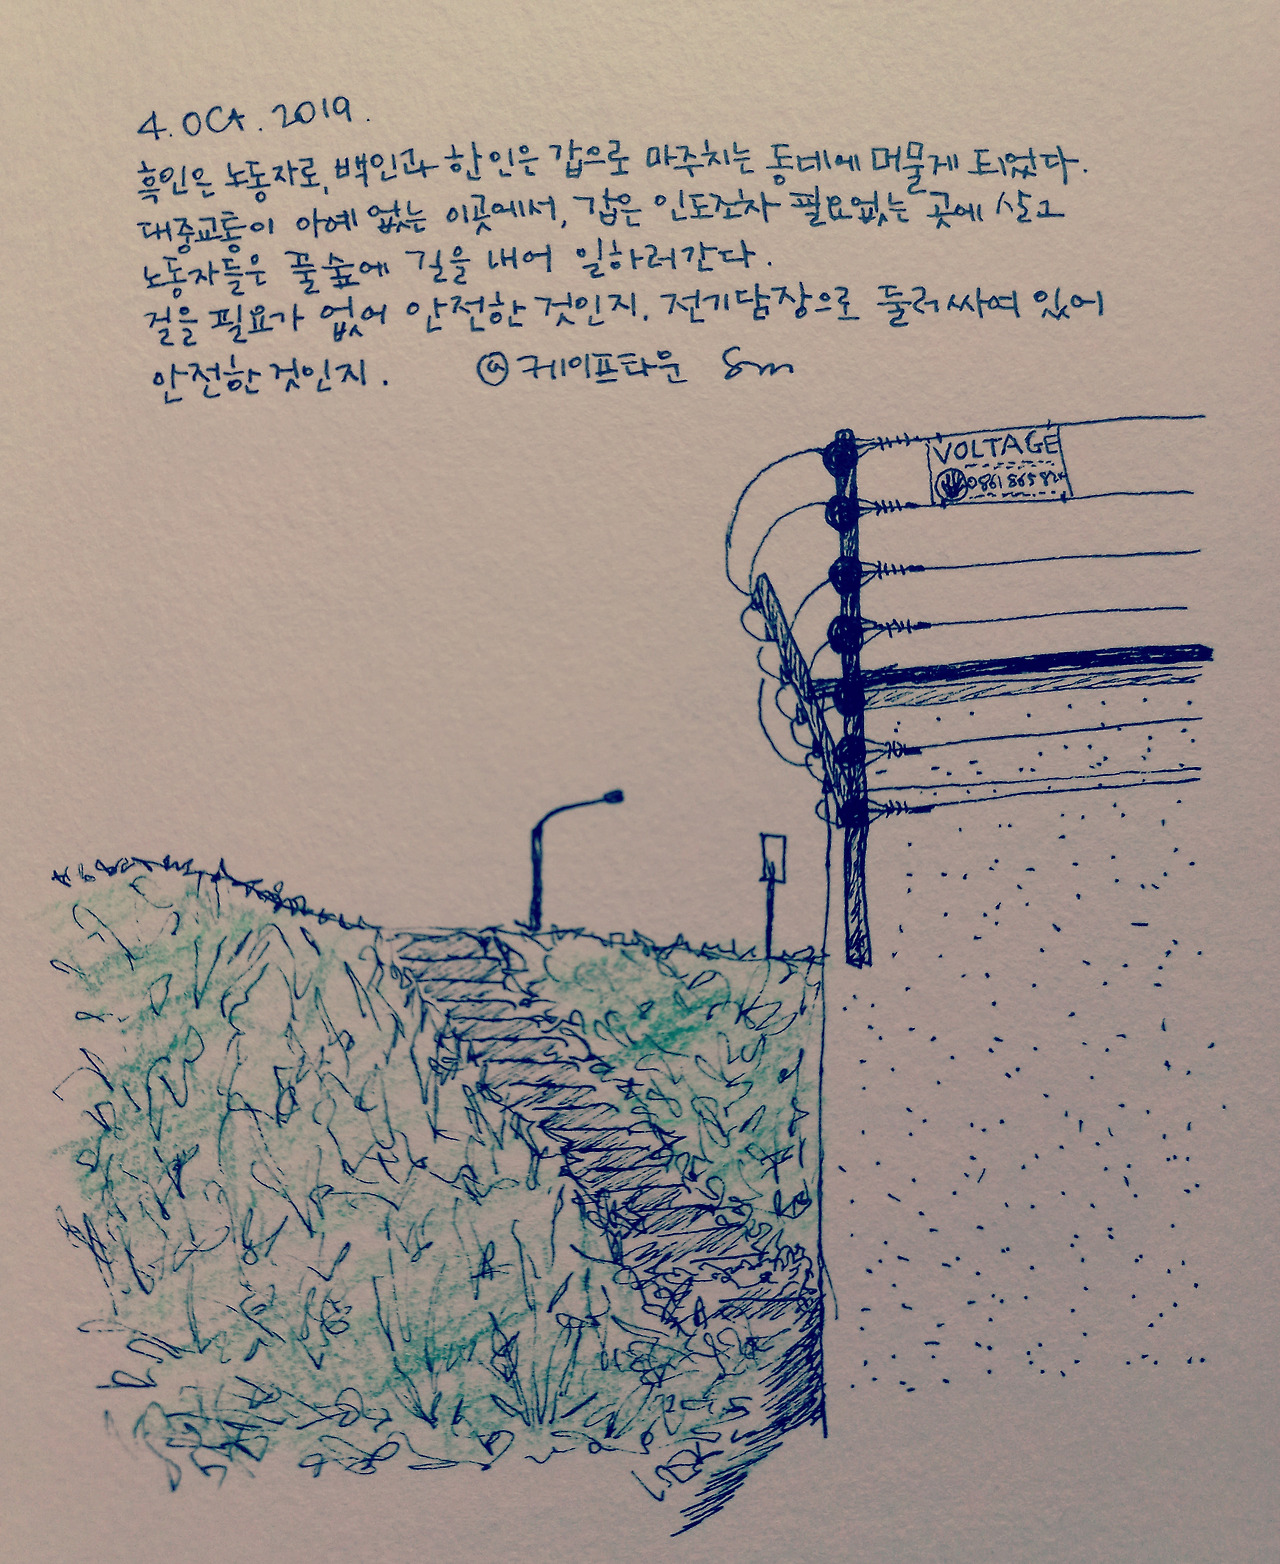 4. OCT. 2019.
흑인은 노동자로, 백인과 한인은 갑으로 마주치는 동네에 머물게 되었다.
대중교통이 아예 없는 이곳에서, 갑은 인도조차 필요없는 곳에 살고
노동자들은 풀숲에 길을 내어 일하러간다.
걸을 필요가 없어 안전한 것인지. 전기담장으로 둘러싸여 있어
안전한 것인지. @케이프타운 Sm
VOLTAGE
0861 865 824